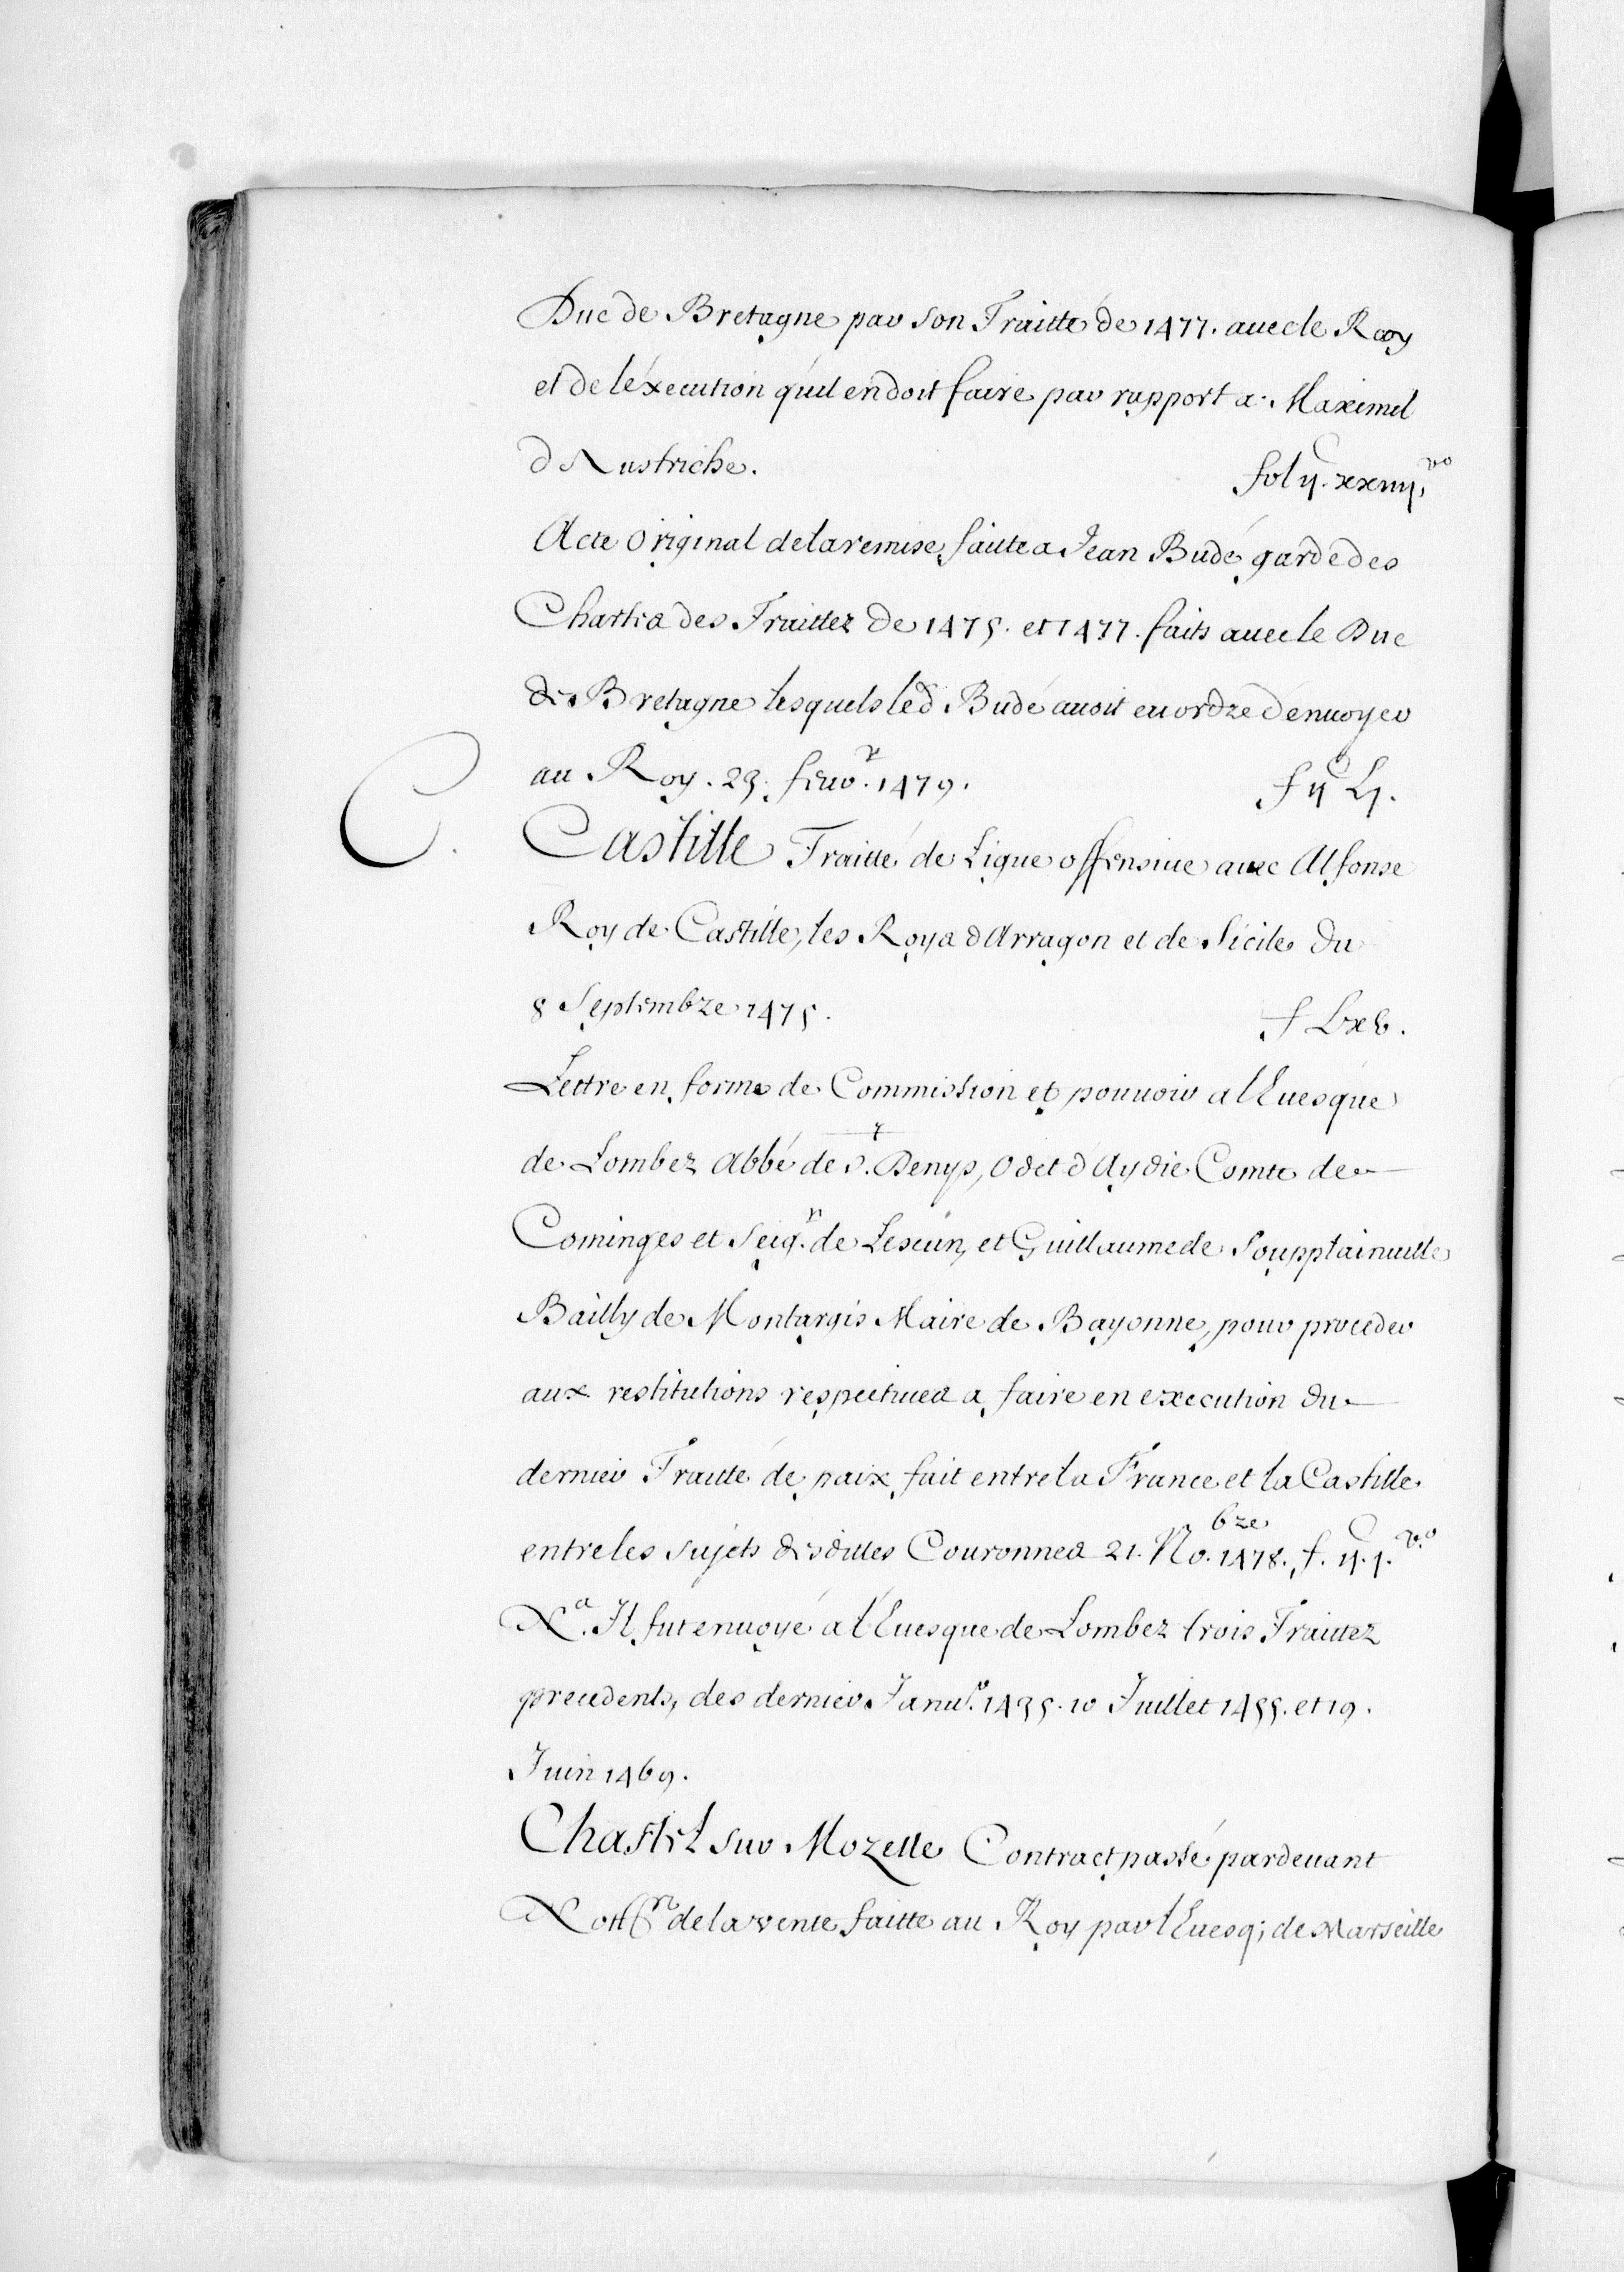 Duc de Bretagne par son Traitté de 1477. avec le Roy
et de léxecution qu'il en doit faire par rapport a Maximil
d'Austriche. fol ijC. xxiiij, vo
Acte Original de la remise faitte a Jean Budé garde des
Chartes des Traittez de 1475. et 1477. faits avec le Duc
de Bretagne lesquels led Budé avoit eu ordre d'envoyer
au Roy. 23. fevr. 1479. f ijC Lj.
C. Castille Traitté de Ligue offensive avec Alfonse
Roy de Castille, les Roys d'Arragon et de Sicile du
8 Septembre 1475. f Lxv.
Lettre en forme de Commission et pouvoir a l'Evesque
de Lombez Abbé de St. Denys, Odet d'Aydie Comte de
Cominges et Seigr. de Lescun, et Guillaume de Soupplainville
Bailly de Montargis Maire de Bayonne, pour proceder
aux restitutions respectives a faire en execution du
dernier Traitté de paix fait entre la France et la Castille
entre les sujets desdittes Couronnes 21. Novbre. 1478. f. ijC. j. vo
Na. Il fut envoyé a l'Evesque de Lombez trois Traittez
precedents, des dernier Janvr. 1435. 10 Juillet 1455. et 19.
Juin 1469.
Chastel sur Mozelle Contract passé pardevant
Nottres de la vente faitte au Roy par l'Evesq; de Marseille